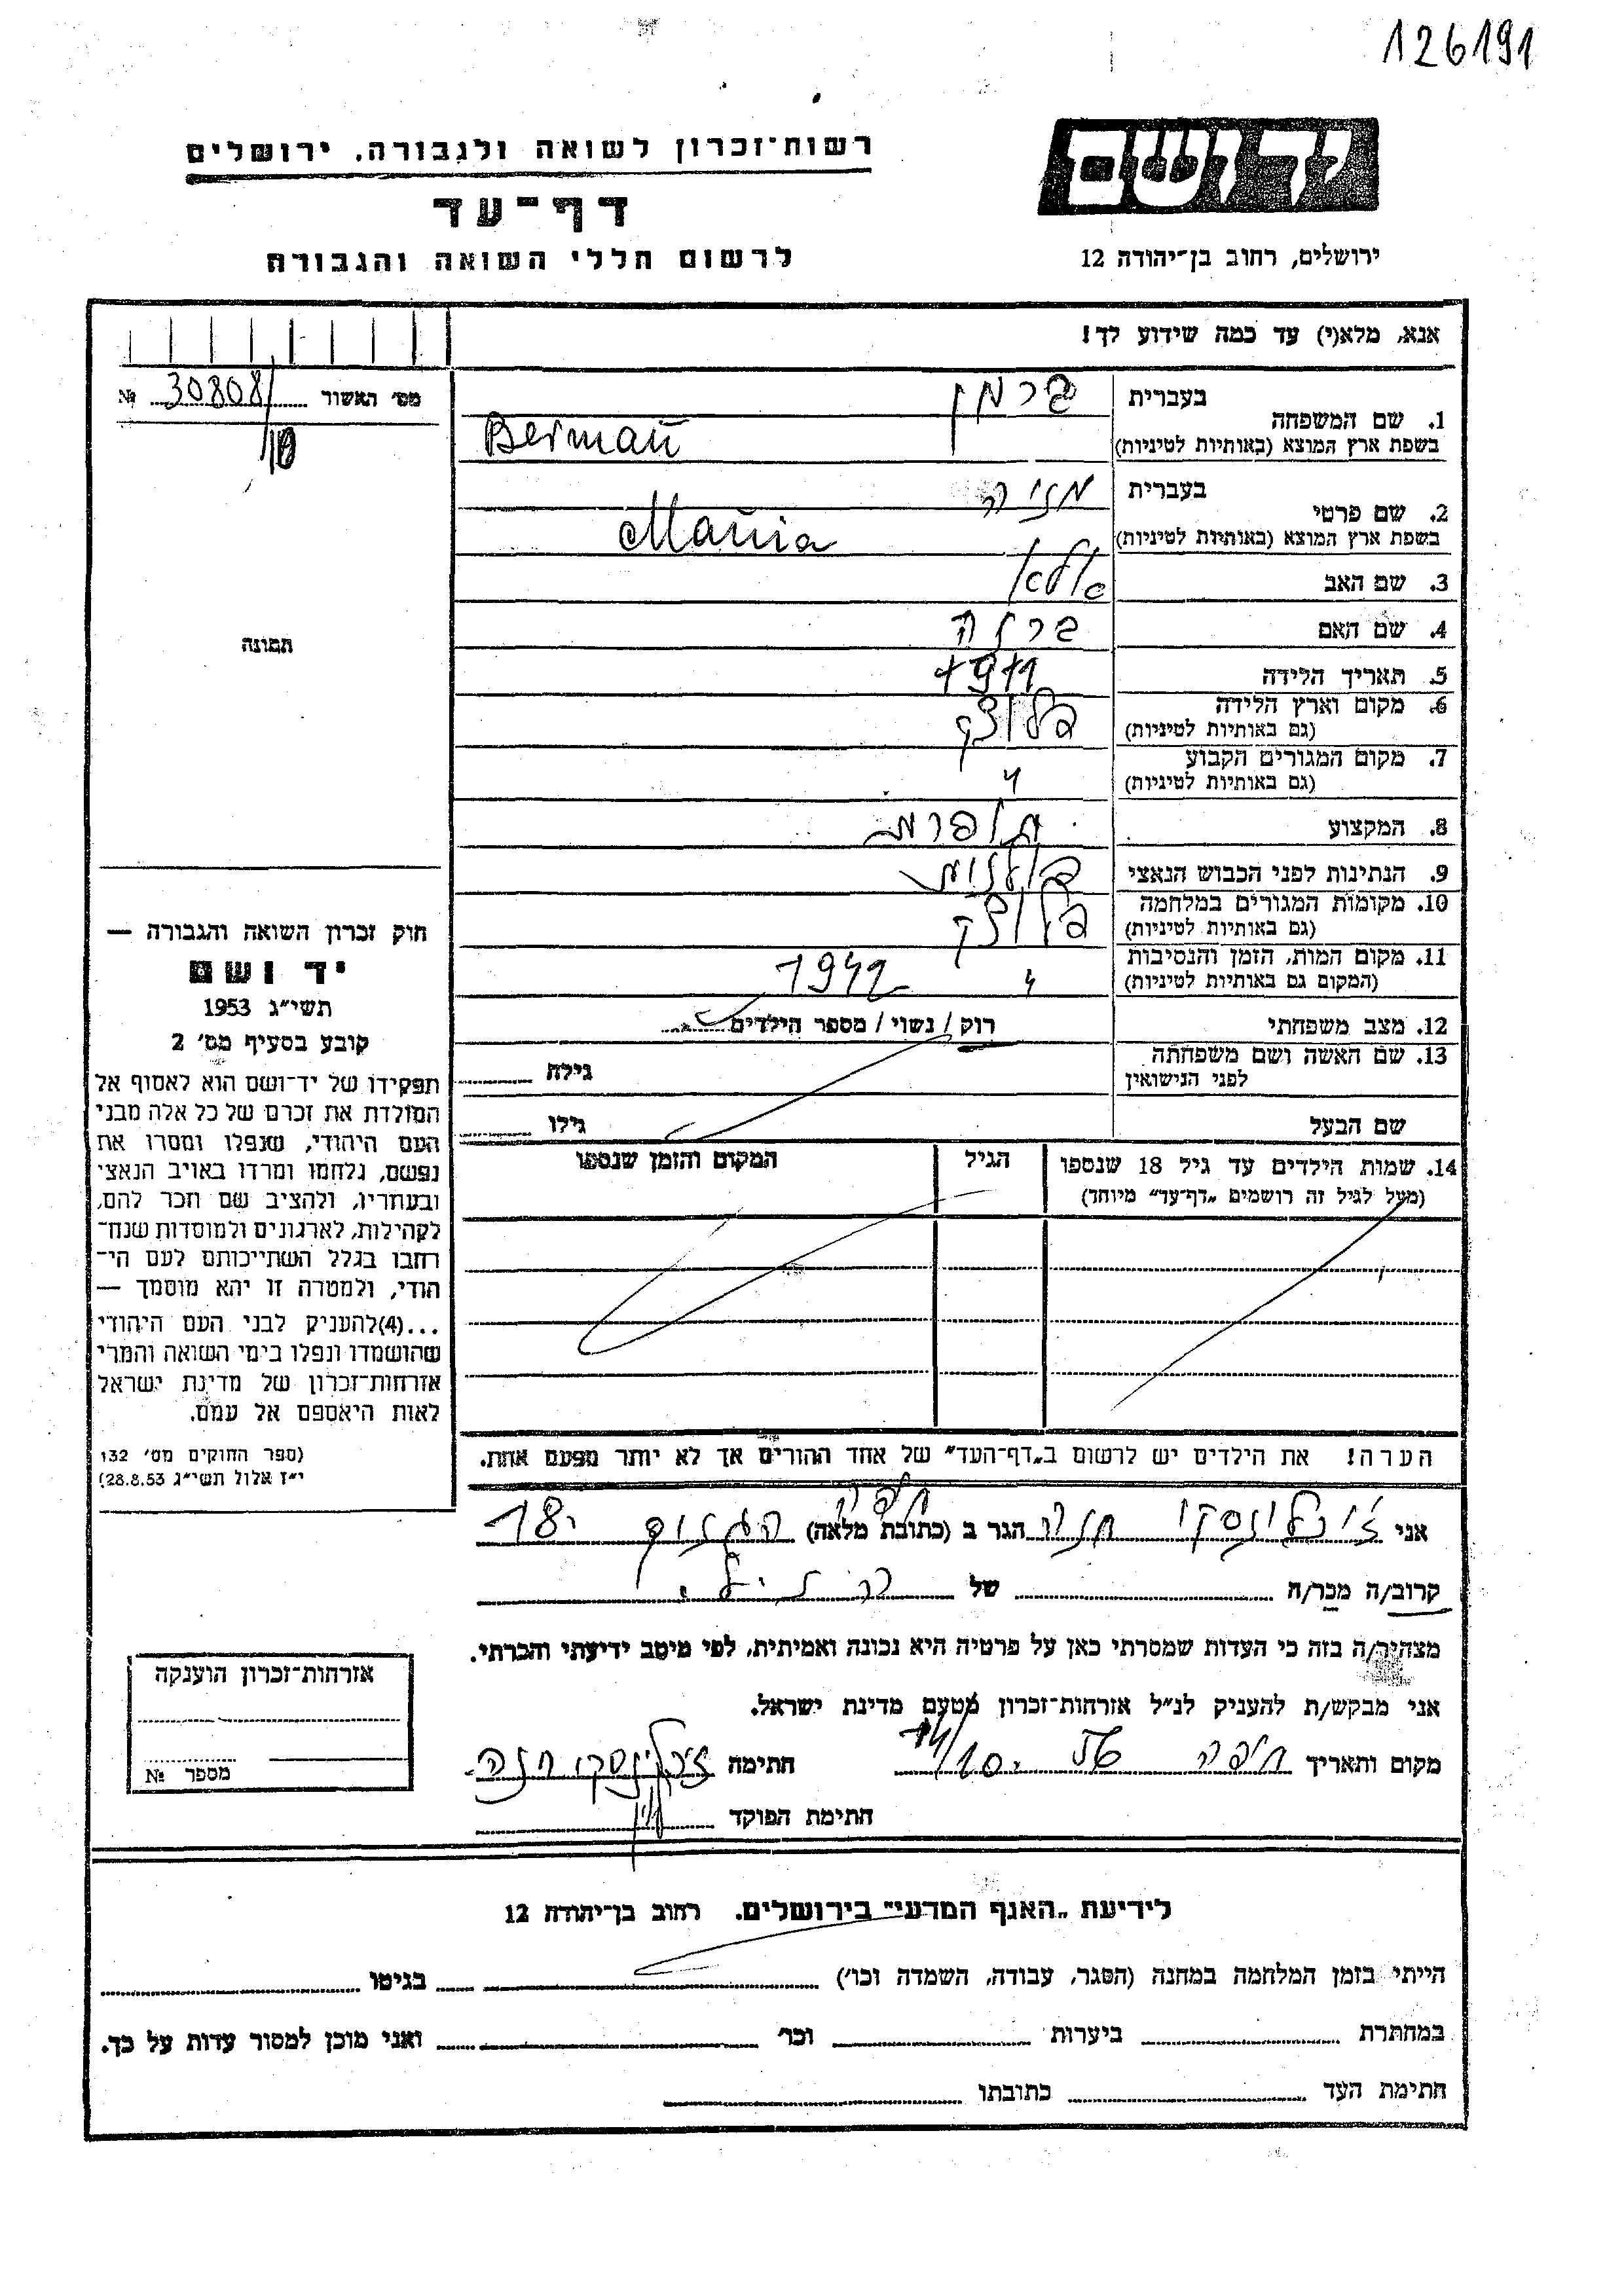 126191
יד ושם
רשות־זכרון לשואה ולגבורה. ירושלים
דף־עד
לרשום חללי השואה והגבורה
ירושלים, רחוב בן־יהודה 12
אנא, מלא(י) עד כמה שידוע לך!
מס׳ האשור 30808/ №
10
1. שם המשפחה
בעברית ברמן
בשפת ארץ המוצא (באותיות לטיניות) Berman
2. שם פרטי
בעברית מניה
בשפת ארץ המוצא (באותיות לטיניות) Mania
3. שם האב
4. שם האם
5. תאריך הלידה 1911
6. מקום וארץ הלידה פלוצק
(גם באותיות לטיניות)
7. מקום המגורים הקבוע "
(גם באותיות לטיניות)
8. המקצוע תופרת
9. הנתינות לפני הכבוש הנאצי פולנית
10. מקומות המגורים במלחמה פלוצק
(גם באותיות לטיניות)
11. מקום המות, הזמן והנסיבות " 1942
(המקום גם באותיות לטיניות)
12. מצב משפחתי רוק / נשוי / מספר הילדים
13. שם האשה ושם משפחתה
לפני הנישואין גילה
שם הבעל גילו
14. שמות הילדים עד גיל 18 שנספו הגיל המקום והזמן שנספו
(מעל לגיל זה רושמים „דף־עד״ מיוחד)
הערה! את הילדים יש לרשום ב„דף־העד״ של אחד ההורים אך לא יותר מפעם אחת.
תמונה
חוק זכרון השואה והגבורה —
יד ושם
תשי״ג 1953
קובע בסעיף מס׳ 2
תפקידו של יד־ושם הוא לאסוף אל
המולדת את זכרם של כל אלה מבני
העם היהודי, שנפלו ומסרו את
נפשם, נלחמו ומרדו באויב הנאצי
ובעוזריו, ולהציב שם וזכר להם,
לקהילות, לארגונים ולמוסדות שנח־
רחבו בגלל השתייכותם לעם הי־
הודי, ולמטרה זו יהא מוסמך —
...(4)להעניק לבני העם היהודי
שהושמדו ונפלו בימי השואה והמרי
אזרחות־זכרון של מדינת ישראל
לאות היאספם אל עמם.
(ספר החוקים מס׳ 132
י״ז אלול תשי״ג 28.8.53)
חיפה
אני חנה הגר ב (כתובת מלאה) 18
קרוב/ה מכר/ה של
מצהיר/ה בזה כי העדות שמסרתי כאן על פרטיה היא נכונה ואמיתית, לפי מיטב ידיעתי והכרתי.
אני מבקש/ת להעניק לנ״ל אזרחות־זכרון מטעם מדינת ישראל.
מקום ותאריך חיפה חתימה חנה
חתימת הפוקד
אזרחות־זכרון הוענקה
מספר №
לידיעת „האגף המדעי״ בירושלים. רחוב בן־יהודה 12
הייתי בזמן המלחמה במחנה (הסגר, עבודה, השמדה וכו׳) בגיטו
במחתרת ביערות וכו׳ ואני מוכן למסור עדות על כך.
חתימת העד כתובתו